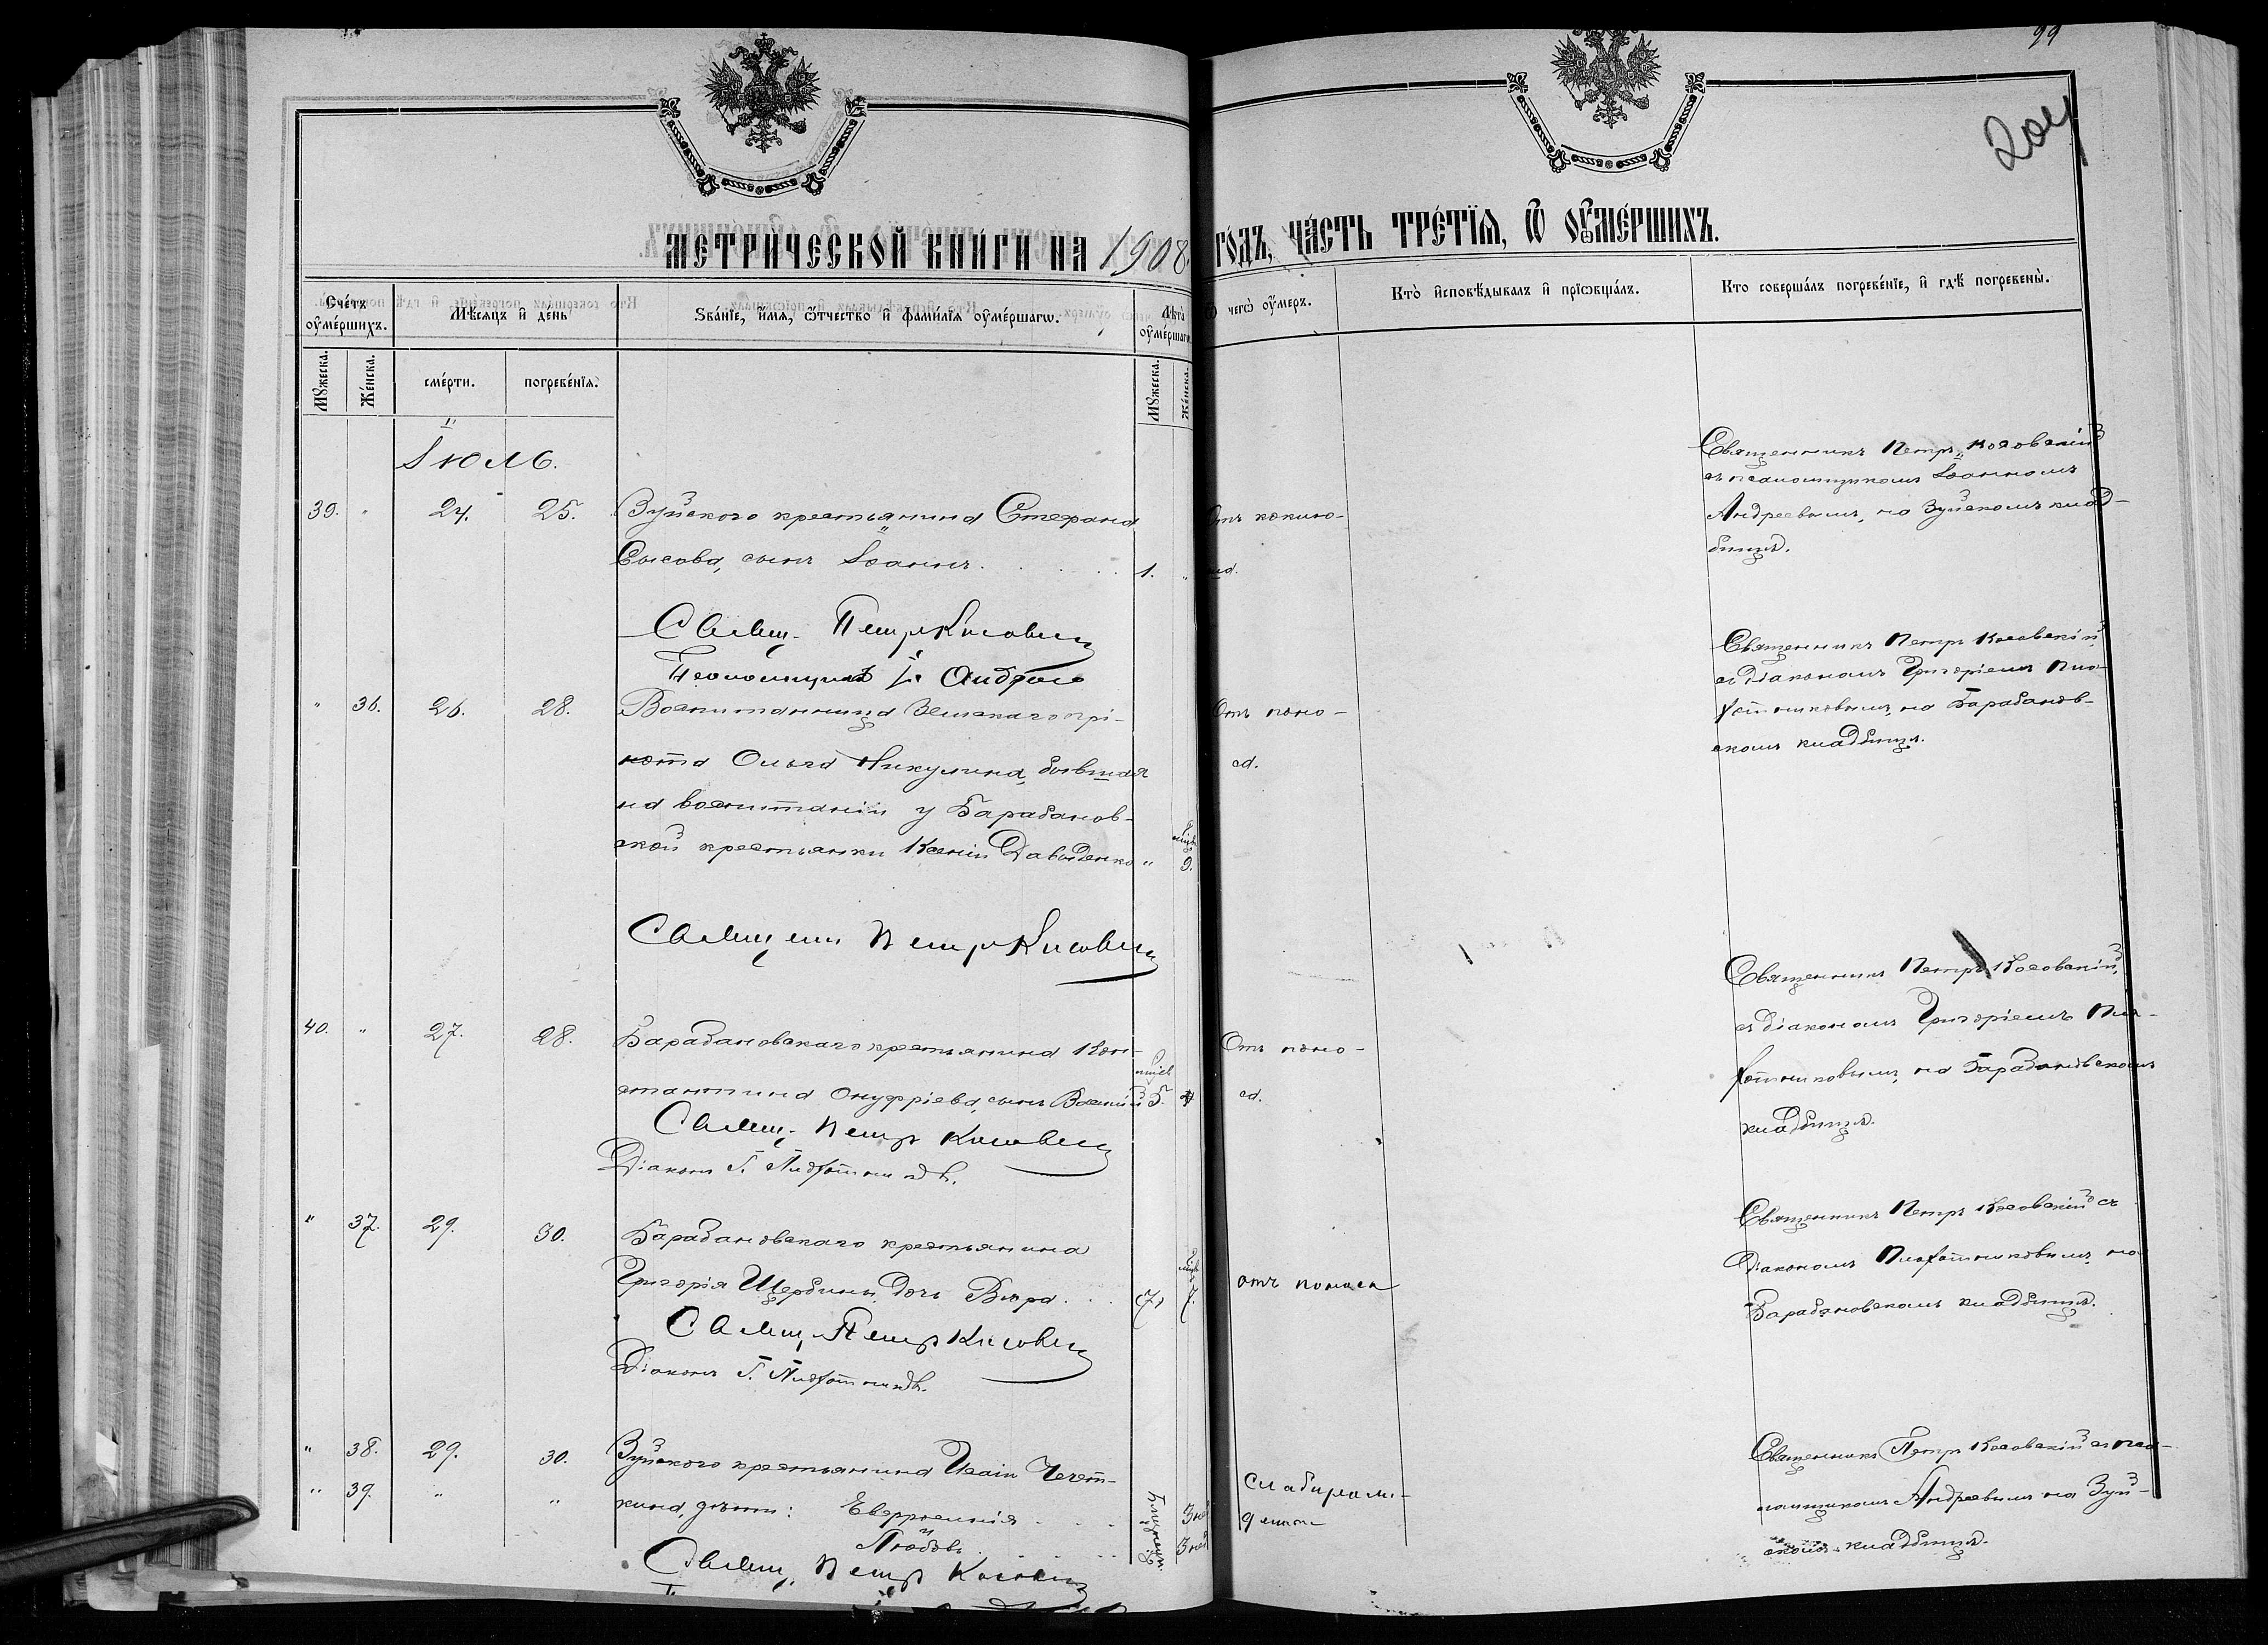 99
204
МЕТРИ́ЧЕСКОЙ КНИ́ГИ НА 1908 ГО́ДЪ, ЧА́СТЬ ТРЕ́ТЇѦ, Ѿ ОУ҆МЕ́РШИХЪ.
Сче́тъ оу҆ме́ршихъ.
Мѣ́сѧцъ и҆ де́нь
Ѕва́нїе, и҆́мѧ, ѻ҆́тчество и҆ фами́лїѧ оу҆ме́ршагѡ.
Лѣ́та оу҆ме́ршагѡ
Ѿ чегѡ̀ оу҆́меръ.
Кто̀ и҆сповѣ́дывалъ и҆ прїѡбща́лъ.
Кто соверша́лъ погребе́нїе, и҆ гдѣ̀ погребены̀.
Мꙋ́жеска.
Же́нска.
сме́рти.
погребе́нїѧ.
Мꙋ́жеска.
Же́нска.
Іюль.
39. " 24. 25. Зуйского крестьянина Стефана
Сысова, сынъ Іоаннъ. 1. "
Отъ коклю-
ша.
Священникъ Петръ Косовскій
съ псаломщикомъ Іоанномъ
Андреевымъ, на Зуйскомъ клад-
бищѣ.
Свящ. Петръ Косовскій
Псаломщикъ І. Андреевъ
" 36. 26. 28. Воспитанница Земскаго прі-
юта Ольга Никулина, бывшая
на воспитаніи у Барабанов-
ской крестьянки Ксеніи Давыденко " мцв 9.
Отъ поно-
са.
Священникъ Петръ Косовскій,
съ діакономъ Григоріемъ Пло-
хотниковымъ, на Барабанов-
скомъ кладбищѣ.
Священ. Петръ Косовскій
40. " 27. 28. Барабановскаго крестьянина Кон-
стантина Онуфріева, сынъ Василій мцв 5. "
Отъ поно-
са.
Священникъ Петръ Косовскій,
съ діакономъ Григоріемъ Пло-
хотниковымъ, на Барабановскомъ
кладбищѣ.
Свящ. Петръ Косовскій
Діаконъ Г. Плохотниковъ.
" 37. 29. 30. Барабановскаго крестьянина
Григорія Щербины, дочь Вѣра. (7) мцв 7.
отъ поноса
Священникъ Петръ Косовскій съ
діакономъ Плохотниковымъ, на
Барабановскомъ кладбищѣ.
Свящ. Петръ Косовскій
Діаконъ Г. Плохотниковъ.
" 38. 29. 30. Зуйского крестьянина Исаіи Чечет-
" 39. " " кина, дѣти: Евфросинія 3 нед
и
Любовь 3 нед
Близнецы
слабирож-
денн
Священникъ Петръ Косовскій съ пса-
ломщикомъ Андреевымъ на Зуй-
скомъ кладбищѣ.
Свящ. Петръ Косовскій